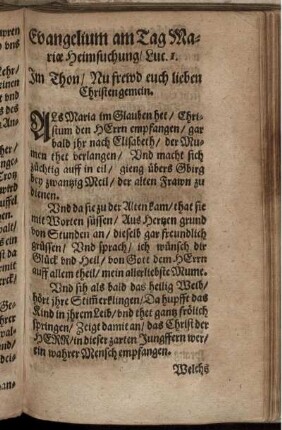 Evangelium am Tag Ma-
riæ Heimsuchung/ Luc. 1.
Im Thon/ Nu frewd euch lieben
Christen gemein.
ALs Maria im Glauben het/ Chri-
stum den HErrn empfangen/ gar
bald jhr nach Elisabeth/ der Mu-
men thet verlangen/ Vnd macht sich
züchtig auff in eil/ gieng vbers Gbirg
bey zwantzig Meil/ der alten Frawn zu
dienen.
Vnd da sie zu der Alten kam/ that sie
mit Worten süssen/ Aus Hertzen grund
von Stunden an/ dieselb gar freundlich
grüssen/ Vnd sprach/ ich wünsch dir
Glück vnd Heil/ von Gott dem HErrn
auff allem theil/ mein allerliebste Mume.
Vnd sih als bald das heilig Weib/
hört jhre Stim̃ erklingen/ Da hupffte das
Kind in jhrem Leib/ vnd thet gantz frölich
springen/ Zeigt damit an/ das Christ der
HERR/ in dieser zarten Jungffern wer/
ein wahrer Mensch empfangen.
Welchs